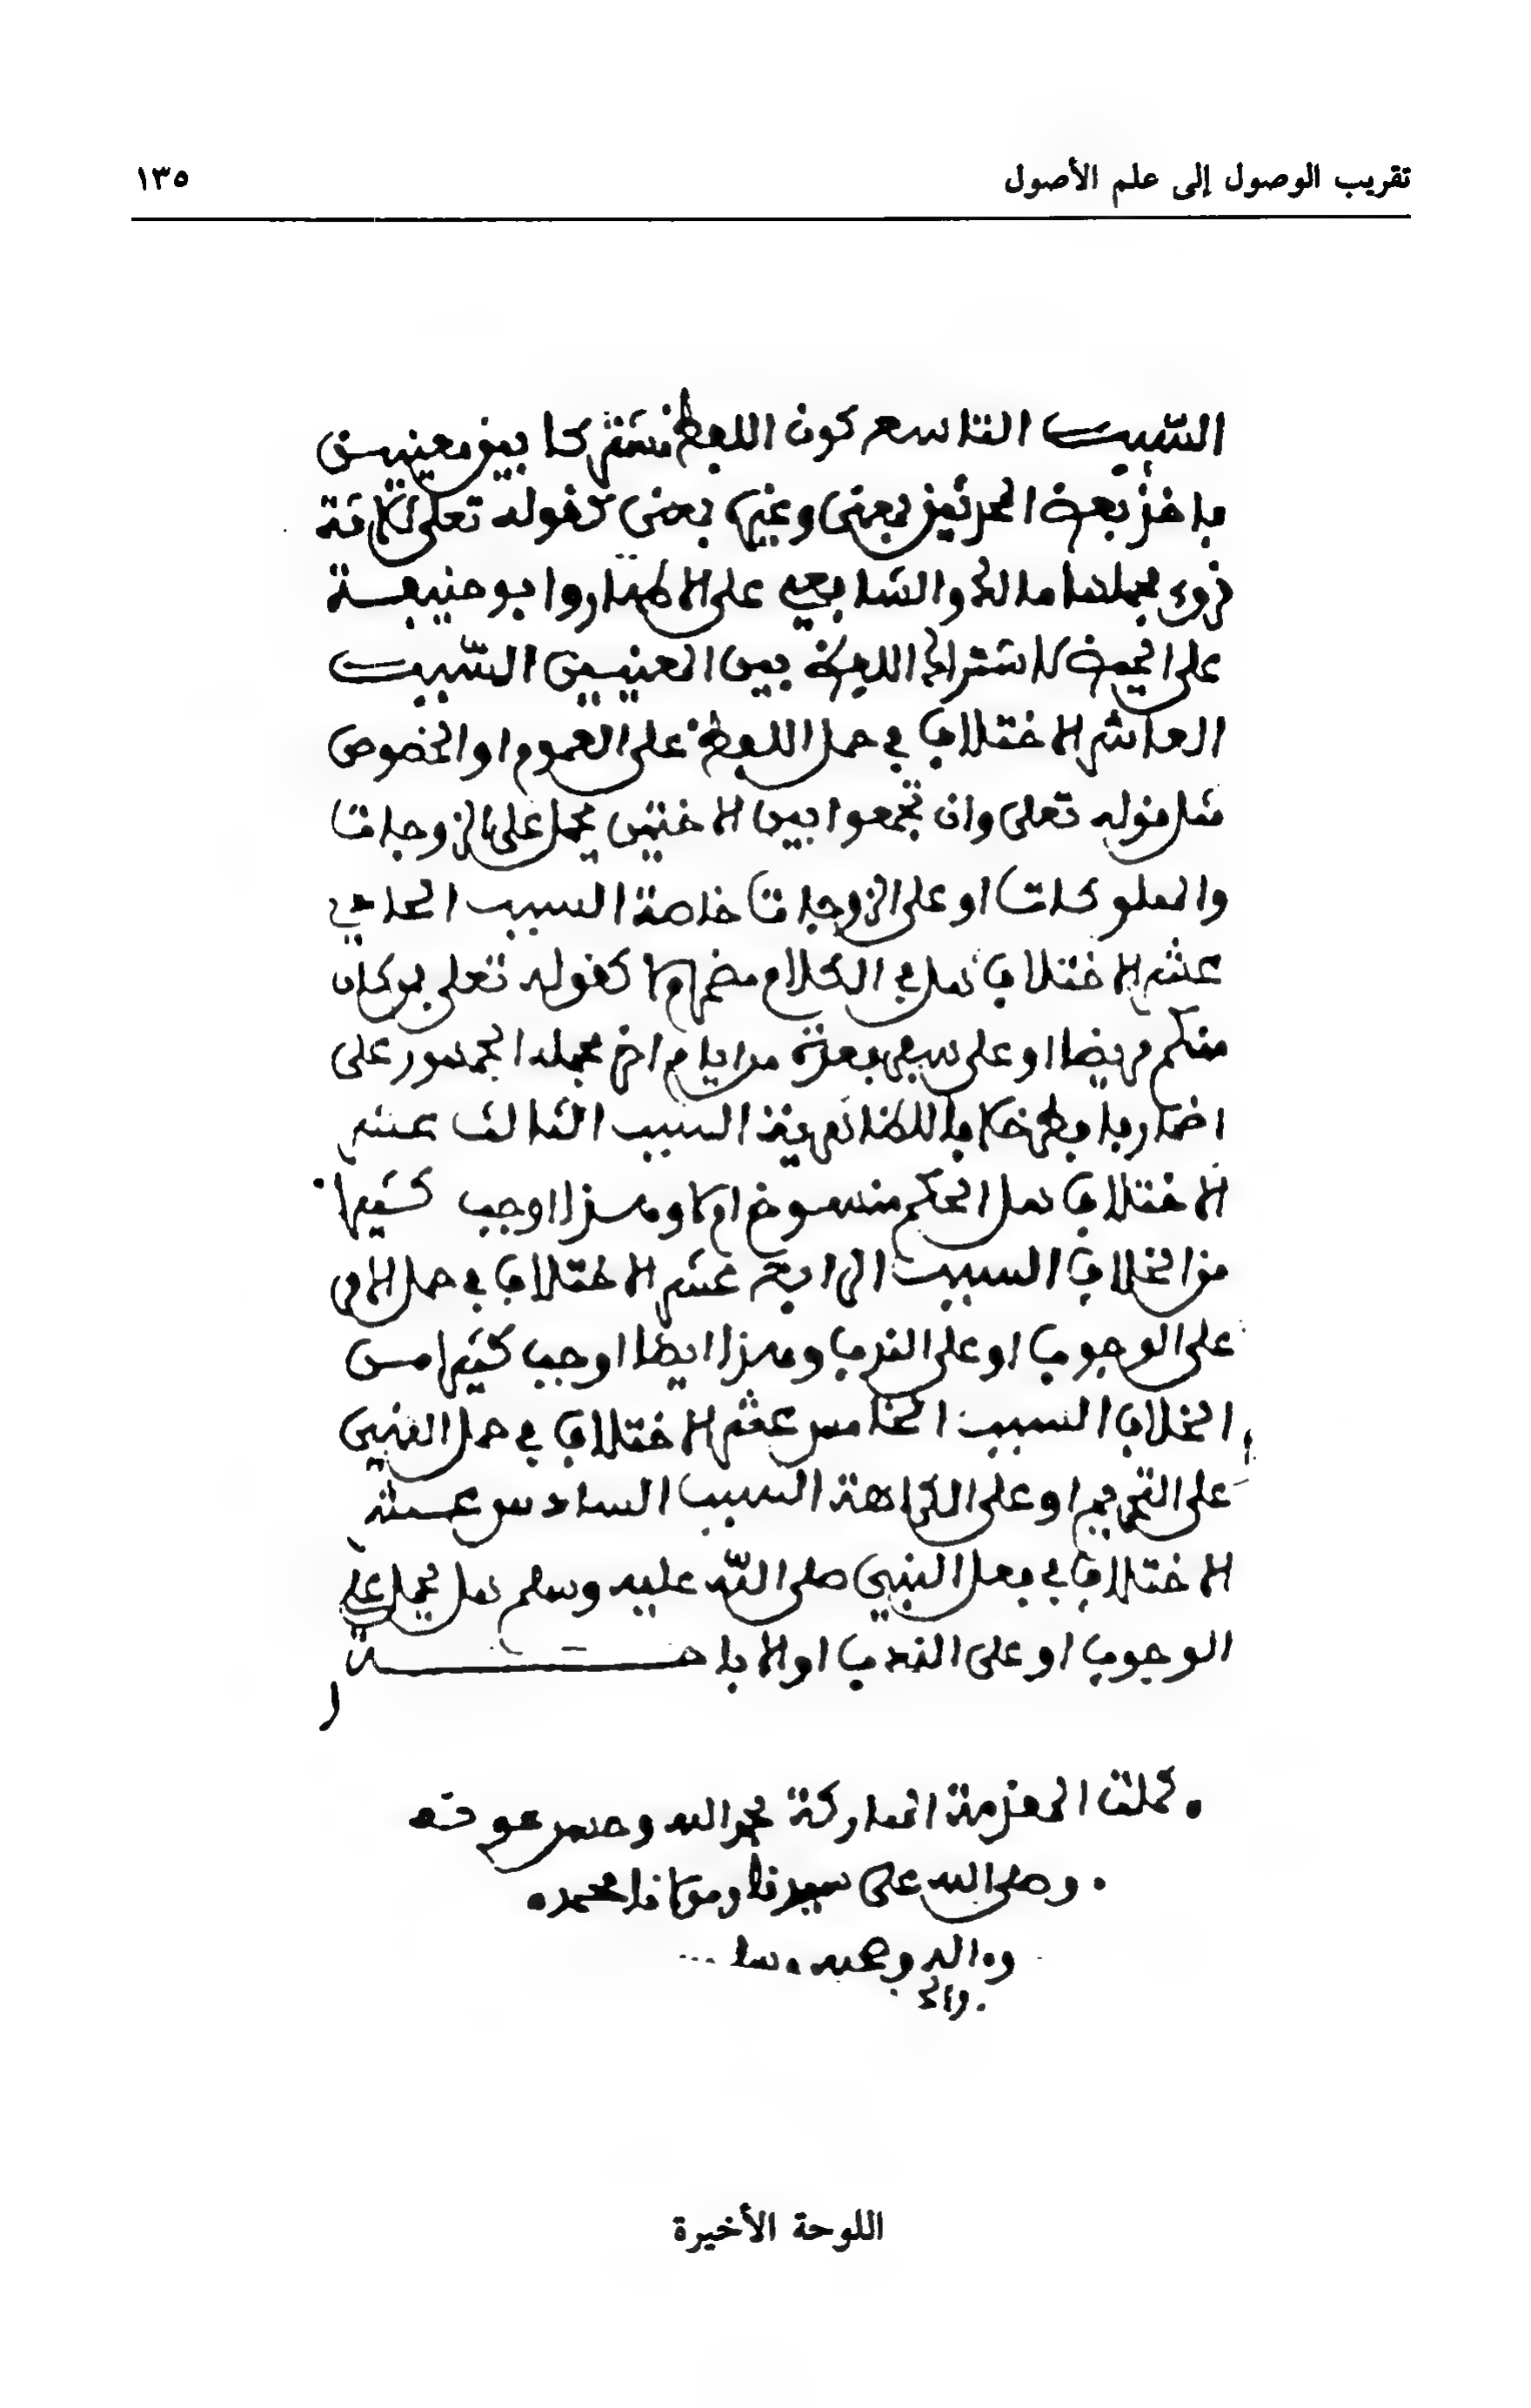 تقريب الوصول إلى علم الأصول
١٣٥
السبب التاسع كون اللفظ مشتركا بين معنيين
فاخذ بعض المجتهدين بمعنى وغيره بمعنى كقوله تعلى ثلاثة
قروء فحملها مالك والشافعي على الاطهار وابو حنيفة
على الحيض لاشتراك اللفظ بين المعنيين السبب
العاشر الاختلاف في حمل اللفظ على العموم او الخصوص
مثل قوله تعلى وان تجمعوا بين الاختين يحمل على الزوجات
والمملوكات او على الزوجات خاصة السبب الحادي
عشر الاختلاف هل في الكلام مضمر ام لا كقوله تعلى فمن كان
منكم مريضا او على سفر فعدة من ايام اخر فحمله الجمهور على
اضمار فافطر خلافا للظاهرية السبب الثالث عشر
الاختلاف هل الحكم منسوخ ام لا وهذا اوجب كثيرا
من الخلاف السبب الرابع عشر الاختلاف في حمل الامر
على الوجوب او على الندب وهذا ايضا اوجب كثيرا من
الخلاف السبب الخامس عشر الاختلاف في حمل النهي
على التحريم او على الكراهة السبب السادس عشر
الاختلاف في فعل النبي صلى الله عليه وسلم هل يحمل على
الوجوب او على الندب او الاباحة
كملت المقدمة المباركة بحمد الله وحسن عونه
وصلى الله على سيدنا ومولانا محمد
وءاله وصحبه وسلم
اللوحة الأخيرة